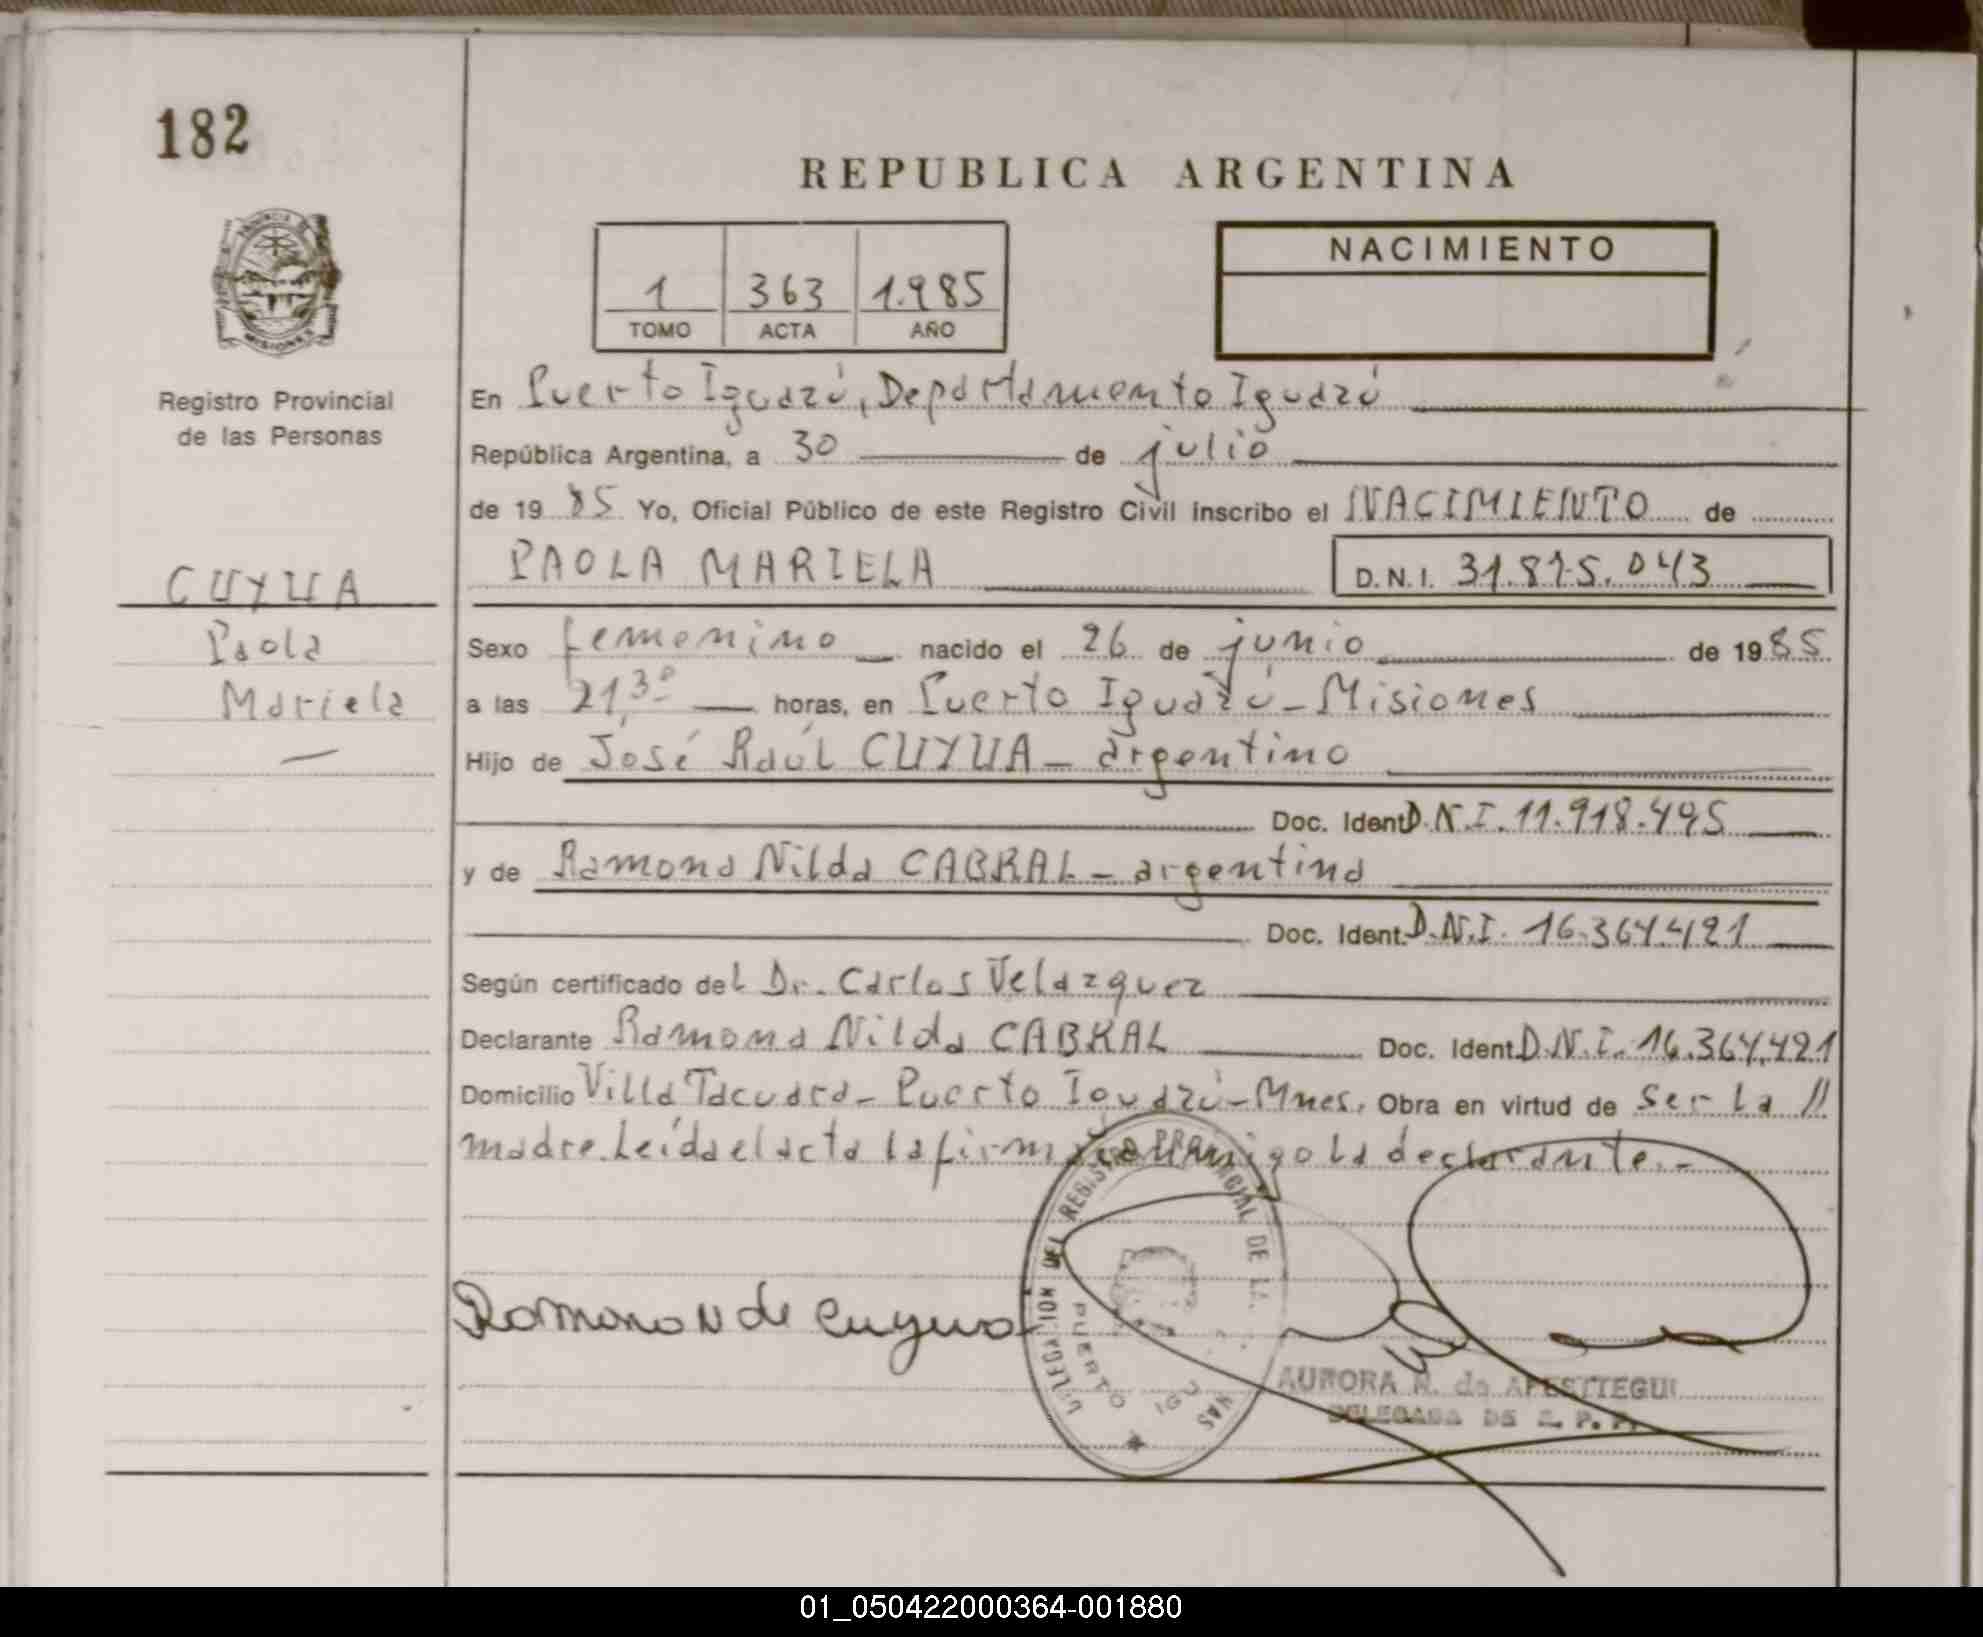 182
REPUBLICA ARGENTINA
PROVINCIA DE MISIONES
1 363 1.985
TOMO ACTA AÑO
NACIMIENTO
Registro Provincial
de las Personas
En Puerto Iguazú, Departamento Iguazú
República Argentina, a 30 de julio
de 19 85 Yo, Oficial Público de este Registro Civil inscribo el NACIMIENTO de
CUYUA
Paola
Mariela
PAOLA MARIELA D.N.I. 31.815.043
Sexo femenino nacido el 26 de junio de 1985
a las 21,30 horas, en Puerto Iguazú - Misiones
Hijo de José Raúl CUYUA - argentino
Doc. Ident. D.N.I. 11.918.495
y de Ramona Nilda CABRAL - argentina
Doc. Ident. D.N.I. 16.364.421
Según certificado del Dr. Carlos Velazquez
Declarante Ramona Nilda CABRAL Doc. Ident. D.N.I. 16.364.421
Domicilio Villa Tacuara - Puerto Iguazú - Mnes. Obra en virtud de ser la //
madre. Leída el acta la firma conmigo la declarante.-
Ramona N de Cuyua
DELEGACION DEL REGISTRO PROVINCIAL DE LA
PUERTO IGU
AURORA R. de APESTTEGUI
DELEGADA DE R. P. P.
01_050422000364-001880